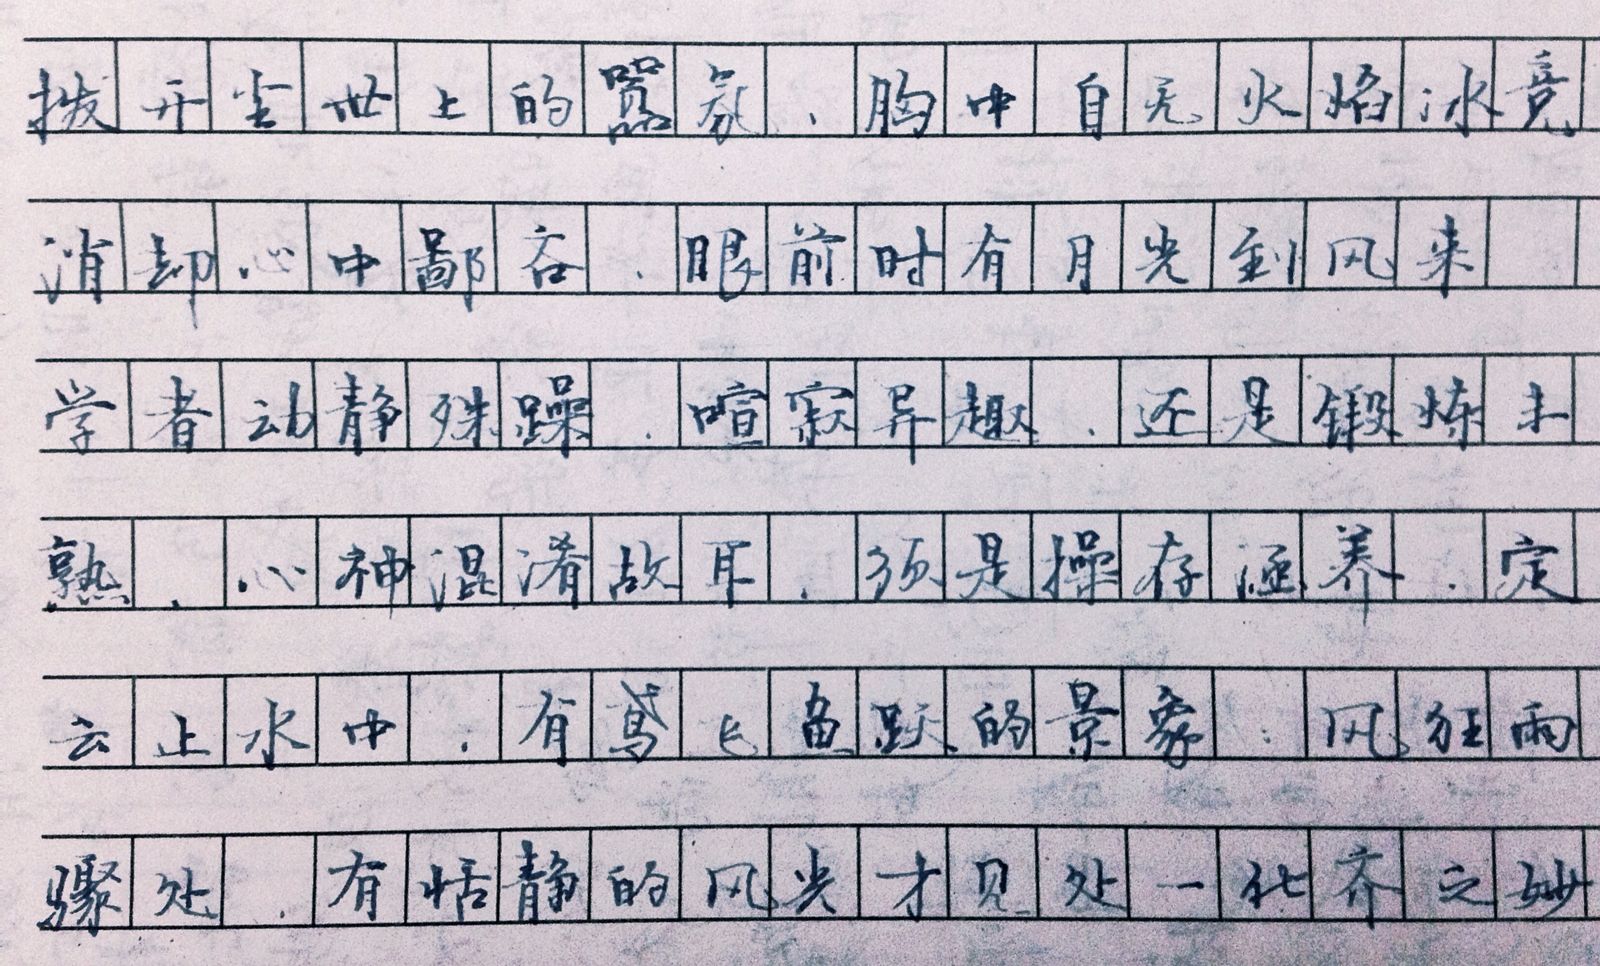 拨开尘世上的嚣氛,胸中自无火焰冰竟
消却心中鄙吝,眼前时有月光到风来
学者动静殊躁,喧寂异趣,还是锻炼未
熟,心神混淆故耳,须是操存涵养,定
云止水中,有鸢飞鱼跃的景象,风狂雨
骤处,有恬静的风光才见处一化齐之妙